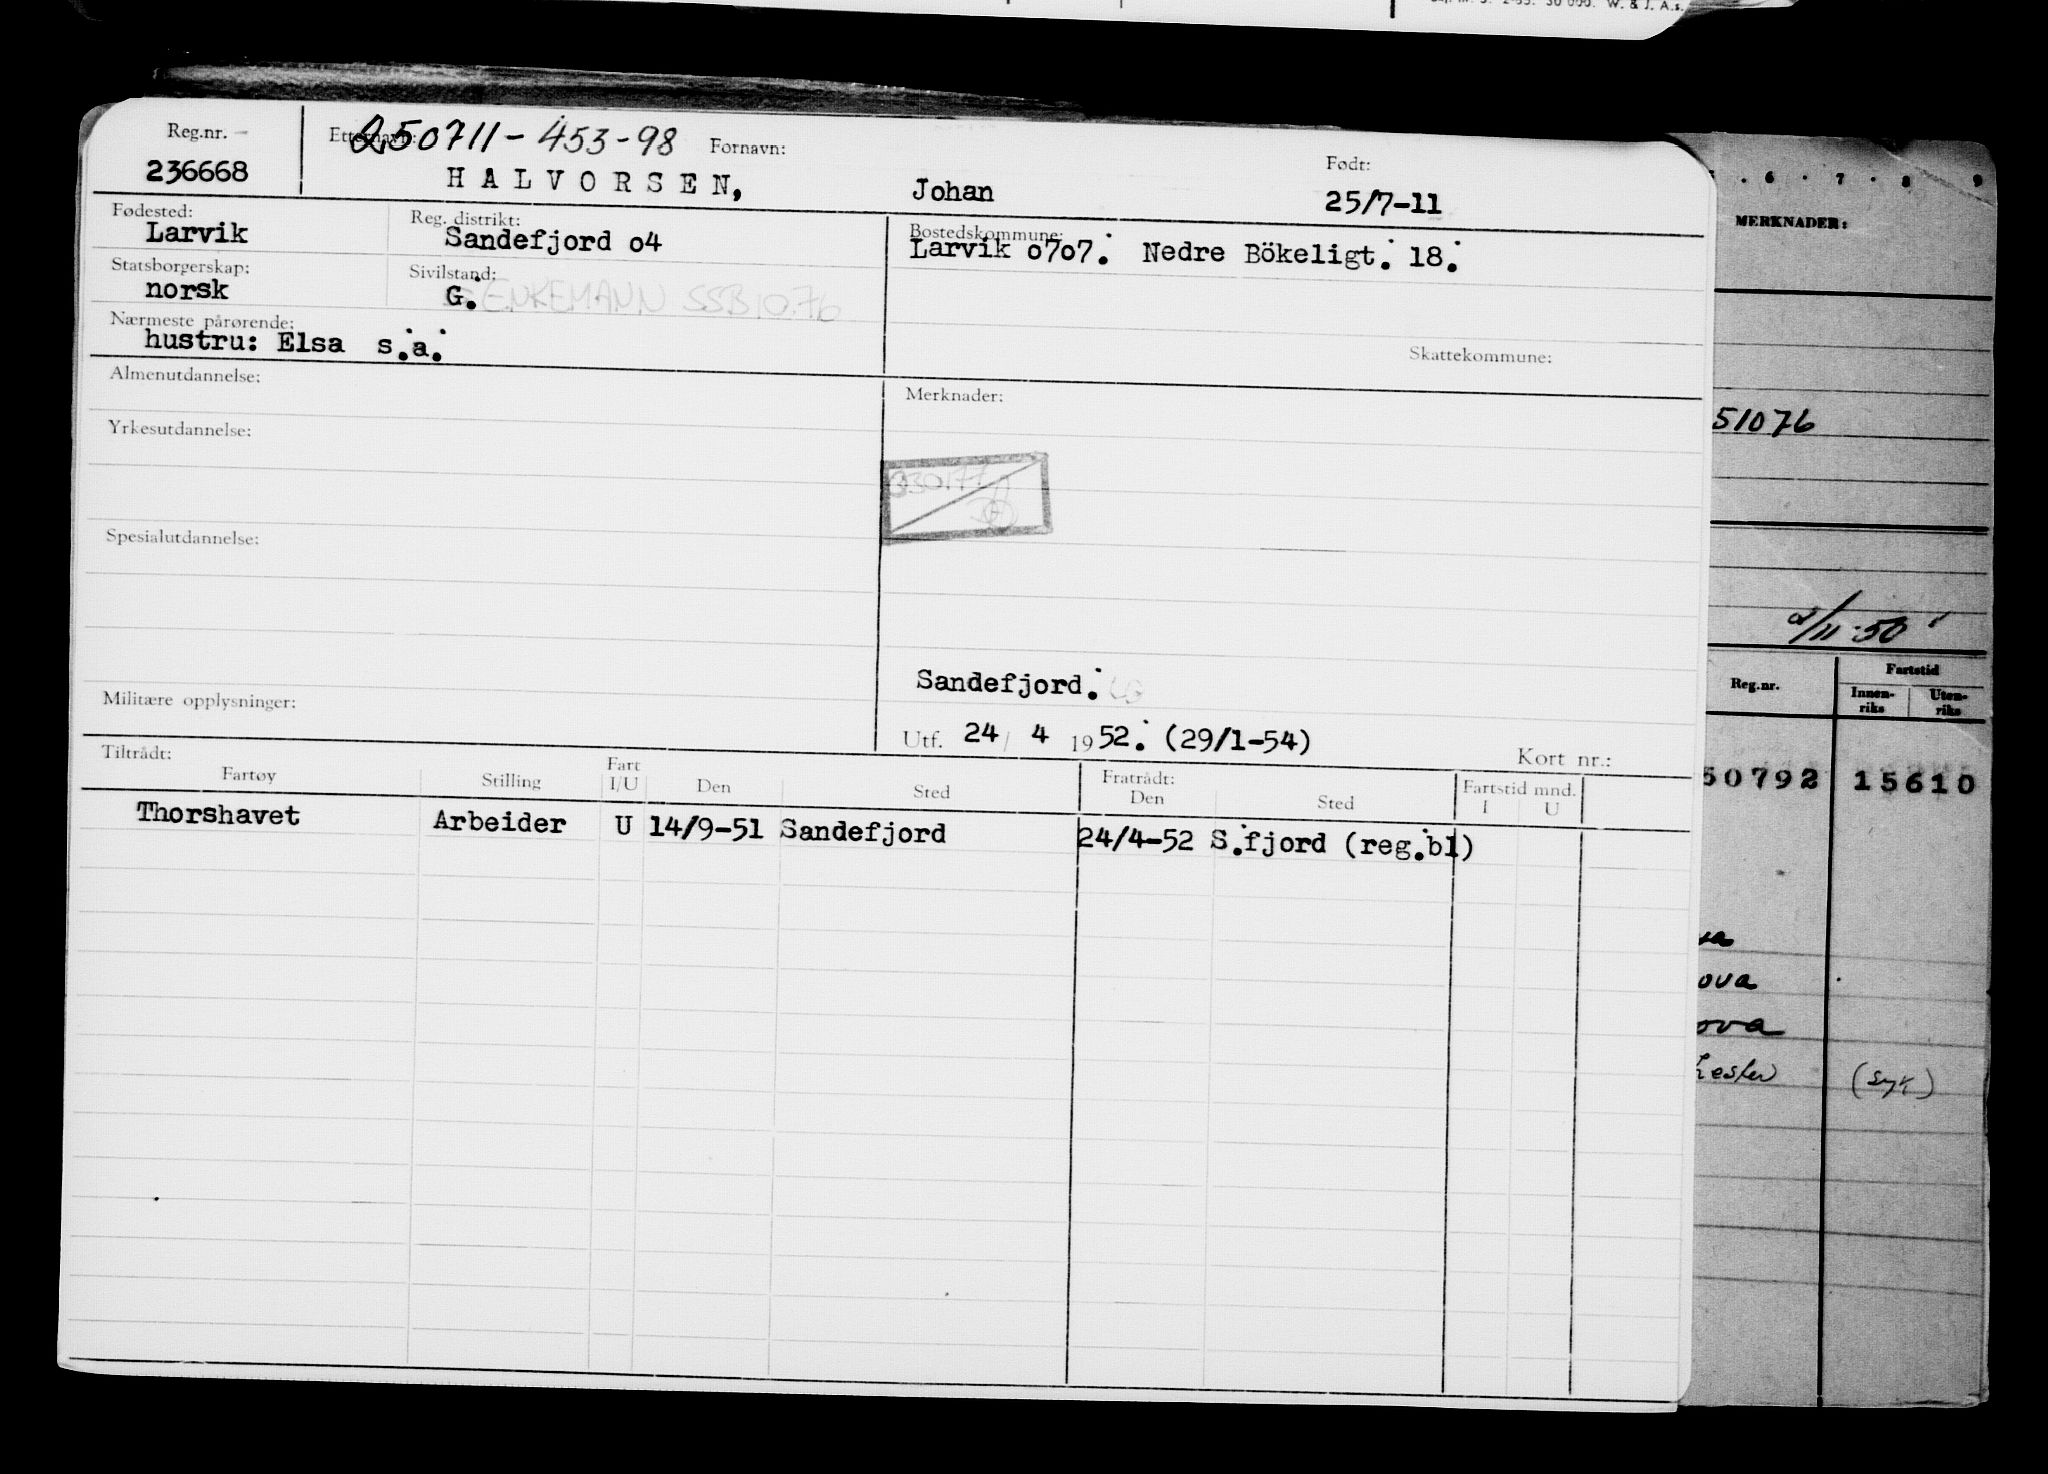 30 000. W. & J. A.s.
Reg.nr. Etternavn: 250711-453-98 Fornavn: Født:
236668 HALVORSEN, Johan 25/7-11
Fødested: Reg. distrikt: Bostedskommune:
Larvik Sandefjord o4 Larvik o7o7. Nedre Bökeligt. 18.
Statsborgerskap: Sivilstand:
norsk G. ENKEMANN SSB 10.76
Nærmeste pårørende:
hustru: Elsa s.a.
Skattekommune:
Almenutdannelse: Merknader:
Yrkesutdannelse:
Spesialutdannelse:
Sandefjord.
Militære opplysninger:
Utf. 24/ 4 1952. (29/1-54) Kort nr.:
Tiltrådt: Fratrådt:
Fartøy Stilling Fart I/U Den Sted Den Sted Fartstid mnd. I U
Thorshavet Arbeider U 14/9-51 Sandefjord 24/4-52 S.fjord (reg.bl)
6 . 7 . 8 9
MERKNADER:
51076
2/11-50
Reg.nr. Fartstid
Innen-riks Uten-riks
50792 15610
ova
ova
(syk)